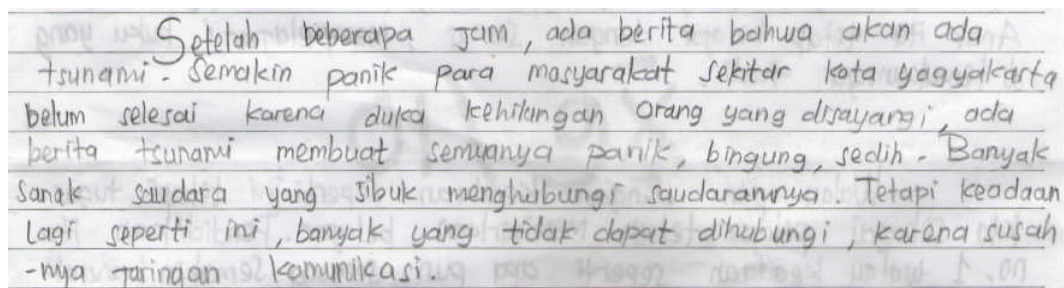 Setelah beberapa jam, ada berita bahwa akan ada
tsunami. Semakin panik para masyarakat sekitar kota yogyakarta
belum selesai karena duka kehilangan orang yang disayangi, ada
berita tsunami membuat semuanya panik, bingung, sedih. Banyak
sanak saudara yang sibuk menghubungi saudarannya. Tetapi keadaan
lagi seperti ini, banyak yang tidak dapat dihubungi, karena susah
-nya jaringan komunikasi.